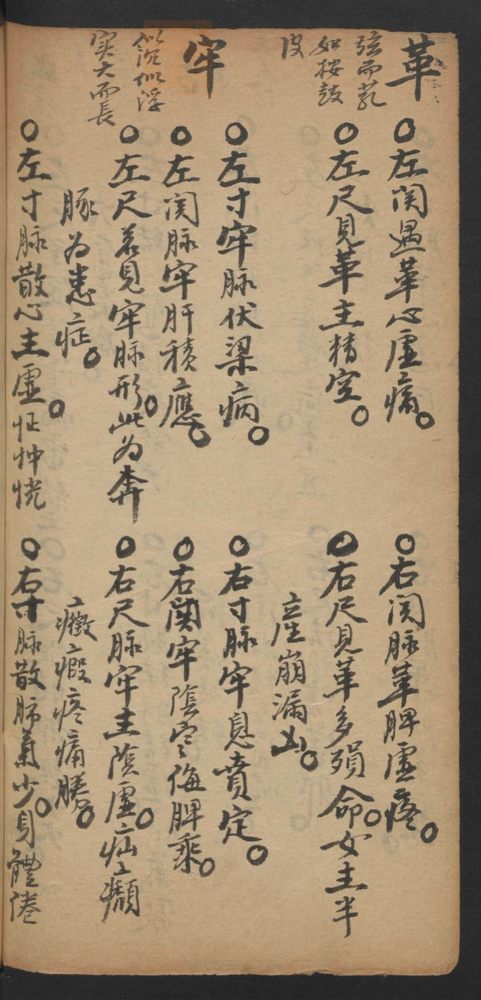 革
弦而芤
如按鼓
皮
○左関遇革心虛痛○
○右関脉革脾虛疼○
○左尺見革主精空○
○右尺見革多殞命○女主半
産崩漏凶○
牢
似沉似浮
实大而長
○左寸牢脉伏梁病○
○右寸脉牢息賁定○
○左関脉牢肝積應○
○右関牢陰寒侮脾乘○
○左尺若見牢脉形○此为奔
豚为患症○
○右尺脉牢主陰虛○疝㿗
癥瘕疼痛勝○
○左寸脉散心主虛○怔忡恍
○右寸脉散肺氣少○身體倦